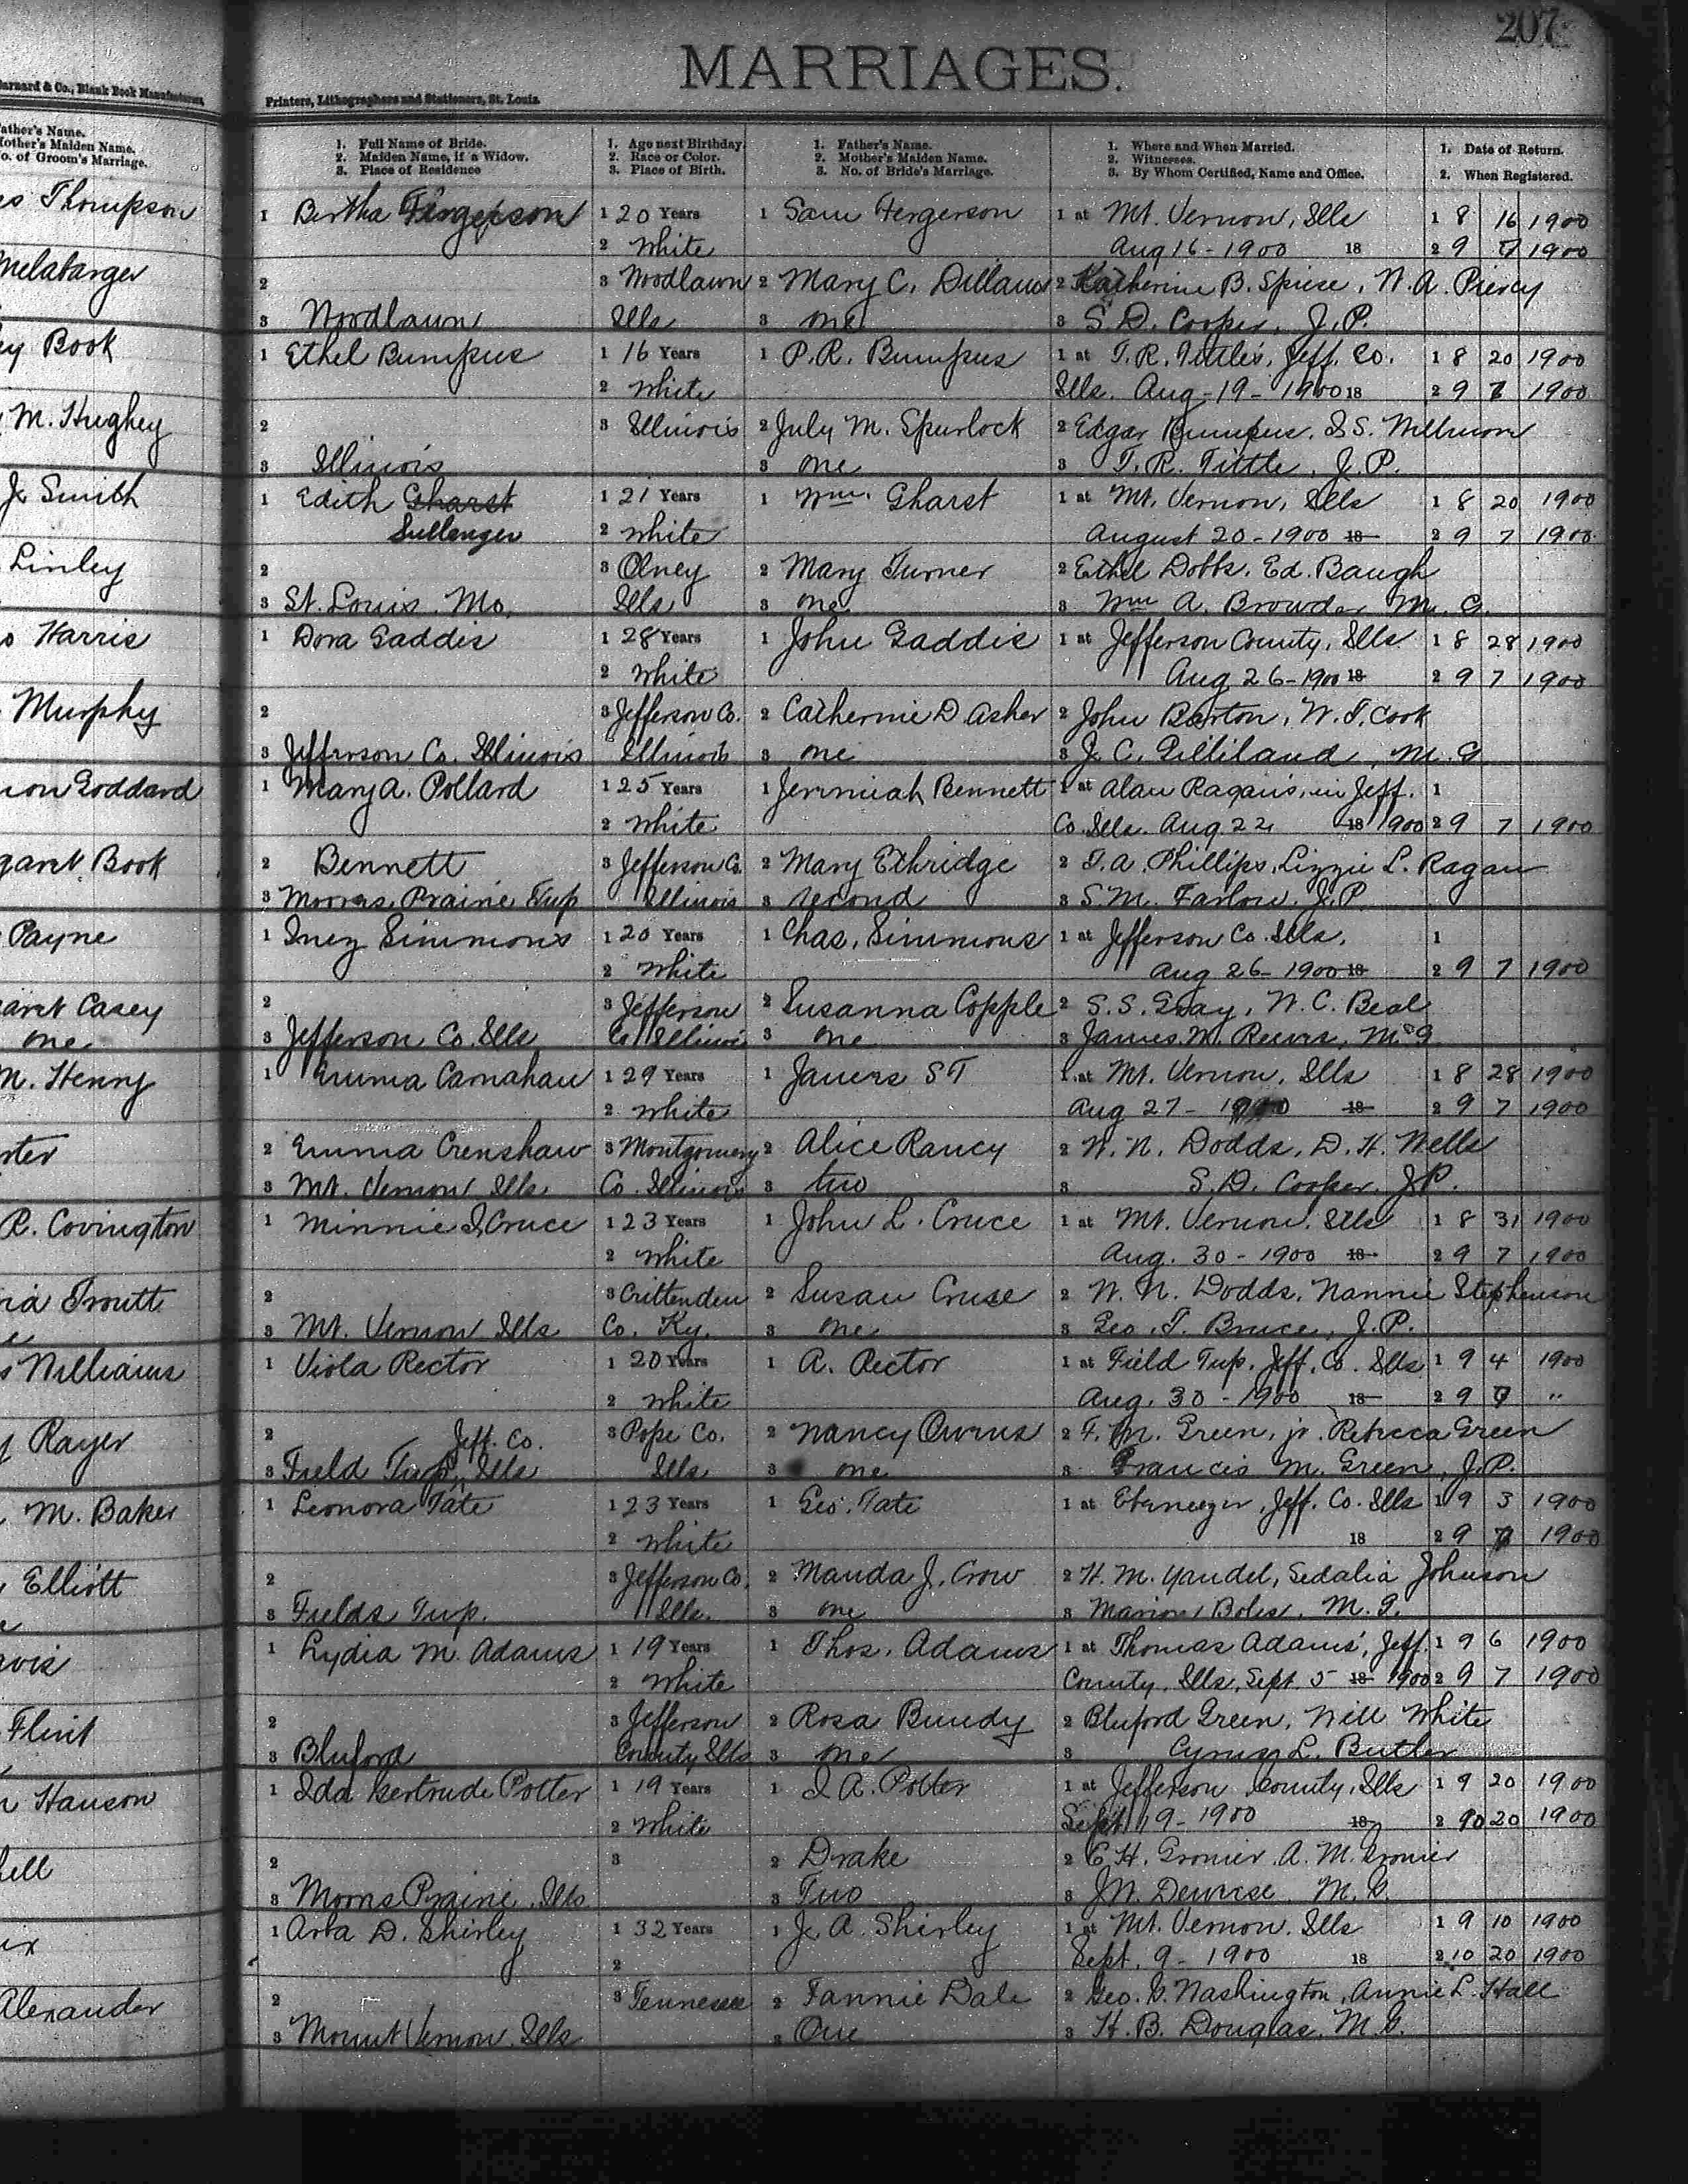 207
MARRIAGES.
Barnard & Co., Blank Book Manufacturers,
Printers, Lithographers and Stationers, St. Louis.
Father's Name.
Mother's Maiden Name.
No. of Groom's Marriage.
1. Full Name of Bride.
2. Maiden Name, if a Widow.
3. Place of Residence
1. Age next Birthday.
2. Race or Color.
3. Place of Birth.
1. Father's Name.
2. Mother's Maiden Name.
3. No. of Bride's Marriage.
1. Where and When Married.
2. Witnesses.
3. By Whom Certified, Name and Office.
1. Date of Return.
2. When Registered.
Thompson
1 Bertha Fergerson 1 20 Years 1 Sam Fergerson 1 at Mt. Vernon, Ills 1 8 16 1900
2 White Aug 16-1900 18 2 9 7 1900
2 3 Woodlawn 2 Mary C. 2 Katherine B. Spiese, W. A. Piercy
3 Woodlawn Ills 3 one 3 S. D. Cooper, J. P.
Book
1 Ethel Bumpus 1 16 Years 1 P. R. Bumpus 1 at T. R. Tittle's, Jeff. Co. 1 8 20 1900
2 White Ills. Aug-19-1900 18 2 9 7 1900
M. Hughey
2 3 Illinois 2 July M. Spurlock 2 Edgar Bumpus.
3 Illinois 3 one 3 T. R. Tittle, J. P.
Smith
1 Edith Gharst 1 21 Years 1 Wm. Gharst 1 at Mt. Vernon, Ills 1 8 20 1900
Sullenger 2 White August 20-1900 18 2 9 7 1900
Linley
2 3 Olney 2 Mary Turner 2 Ethel Dobbs. Ed. Baugh
3 St. Louis. Mo. Ills 3 one 3 Wm A. Browder M. G.
Harris
1 Dora Gaddis 1 28 Years 1 John Gaddis 1 at Jefferson County, Ills 1 8 28 1900
2 White Aug 26-1900 18 2 9 7 1900
Murphy
2 3 Jefferson Co. 2 Catherine D Asher 2 John Barton, W. T. Cook
3 Jefferson Co. Illinois Illinois 3 one 3 J. C. Gilliland, M. G
Goddard
1 Mary A. Pollard 1 25 Years 1 Jerimiah Bennett 1 at Alan Ragan's, in Jeff. 1
2 White Co. Ills. Aug 22 18 1900 2 9 7 1900
Book
2 Bennett 3 Jefferson Co. 2 Mary Ethridge 2 T. A. Phillips, Lizzie L. Ragan
3 Moores Prairie Twp Illinois 3 second 3 S. M. Farlow. J. P.
Payne
1 Inez Simmons 1 20 Years 1 Chas. Simmons 1 at Jefferson Co. Ills. 1
2 White Aug 26-1900 18 2 9 7 1900
Casey
2 3 Jefferson 2 Susanna Copple 2 S. S. Gray, W. C. Beal
one
3 Jefferson Co. Ills Co Illinois 3 one 3 James M. Reeves, M. G
M. Henry
1 Emma Carnahan 1 29 Years 1 1 at Mt. Vernon, Ills 1 8 28 1900
2 White Aug 27- 1900 18 2 9 7 1900
2 Emma Crenshaw 3 Montgomery 2 Alice 2 W. N. Dodds, D. H. Wells
3 Mt. Vernon Ills. Co. Illinois 3 two 3 S. D. Cooper. J P.
R. Covington
1 Minnie I Cruce 1 23 Years 1 John L. Cruce 1 at Mt. Vernon. Ills 1 8 31 1900
2 White Aug. 30-1900 18 2 9 7 1900
Troutt
2 3 Crittenden 2 Susan Cruse 2 W. N. Dodds, Nannie Stephenson
3 Mt. Vernon Ills Co. Ky. 3 one 3 Geo. T. Bruce, J. P.
Williams
1 Viola Rector 1 20 Years 1 A. Rector 1 at Field Twp. Jeff. Co. Ills 1 9 4 1900
2 White Aug. 30-1900 18 2 9 7 "
Rayer
2 Jeff. Co. 3 Pope Co. 2 Nancy Owens 2 F. M. Green, jr. Rebecca Green
3 Field Twp. Ills Ills 3 one 3 Francis M. Green, J. P.
M. Baker
1 Leonora Tate 1 23 Years 1 Geo. Tate 1 at Ebeneezer, Jeff. Co. Ills 1 9 3 1900
2 White 18 2 9 7 1900
Elliott
2 3 Jefferson Co. 2 Manda J. Crow 2 H. M. Yandel, Sedalia Johnson
3 Fields Twp. Ills. 3 one 3 Marion Boles. M. G.
1 Lydia M. Adams 1 19 Years 1 Thos. Adams 1 at Thomas Adams', Jeff. 1 9 6 1900
2 White County, Ills, Sept. 5 18 1900 2 9 7 1900
Flint
2 3 Jefferson 2 Rosa Bundy 2 Bluford Green, Will White
3 Bluford County Ills 3 one 3 Cyrus L. Butler
Hanson
1 Ida Gertrude Potter 1 19 Years 1 I A. Potter 1 at Jefferson County, Ills 1 9 20 1900
2 White Sept 19-1900 18 2 10 20 1900
2 3 2 Drake 2 E H. Gronier A. M. Gronier
3 Moores Prairie, Ills 3 Two 3 M. G.
1 Arta D. Shirley 1 32 Years 1 J. A. Shirley 1 at Mt. Vernon. Ills 1 9 10 1900
2 Sept. 9-1900 18 2 10 20 1900
Alexander
2 3 Tennessee 2 Fannie Dale 2 Geo. G. Washington, Annie L. Hall
3 Mount Vernon. Ills 3 One 3 H. B. Douglas. M. G.